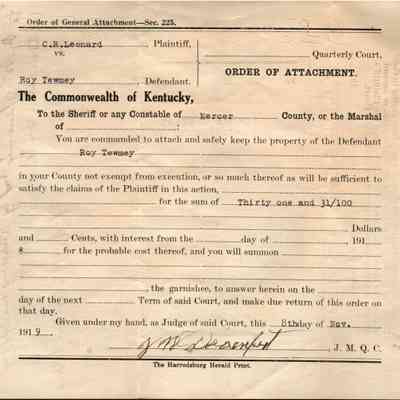 Order of General Attachment—Sec. 225.
C.R.Leonard, Plaintiff,
vs.
Quarterly Court,
Roy Tewmey, Defendant.
ORDER OF ATTACHMENT.
The Commonwealth of Kentucky,
To the Sheriff or any Constable of Mercer County, or the Marshal
of :
You are commanded to attach and safely keep the property of the Defendant
Roy Tewmey
in your County not exempt from execution, or so much thereof as will be sufficient to
satisfy the claims of the Plaintiff in this action,
for the sum of Thirty one and 31/100
Dollars
and Cents, with interest from the day of , 191
$ for the probable cost thereof, and you will summon
, the garnishee, to answer herein on the
day of the next Term of said Court, and make due return of this order on
that day.
Given under my hand, as Judge of said Court, this 8th day of Nov.
1919.
, J. M. Q. C.
The Harrodsburg Herald Print.